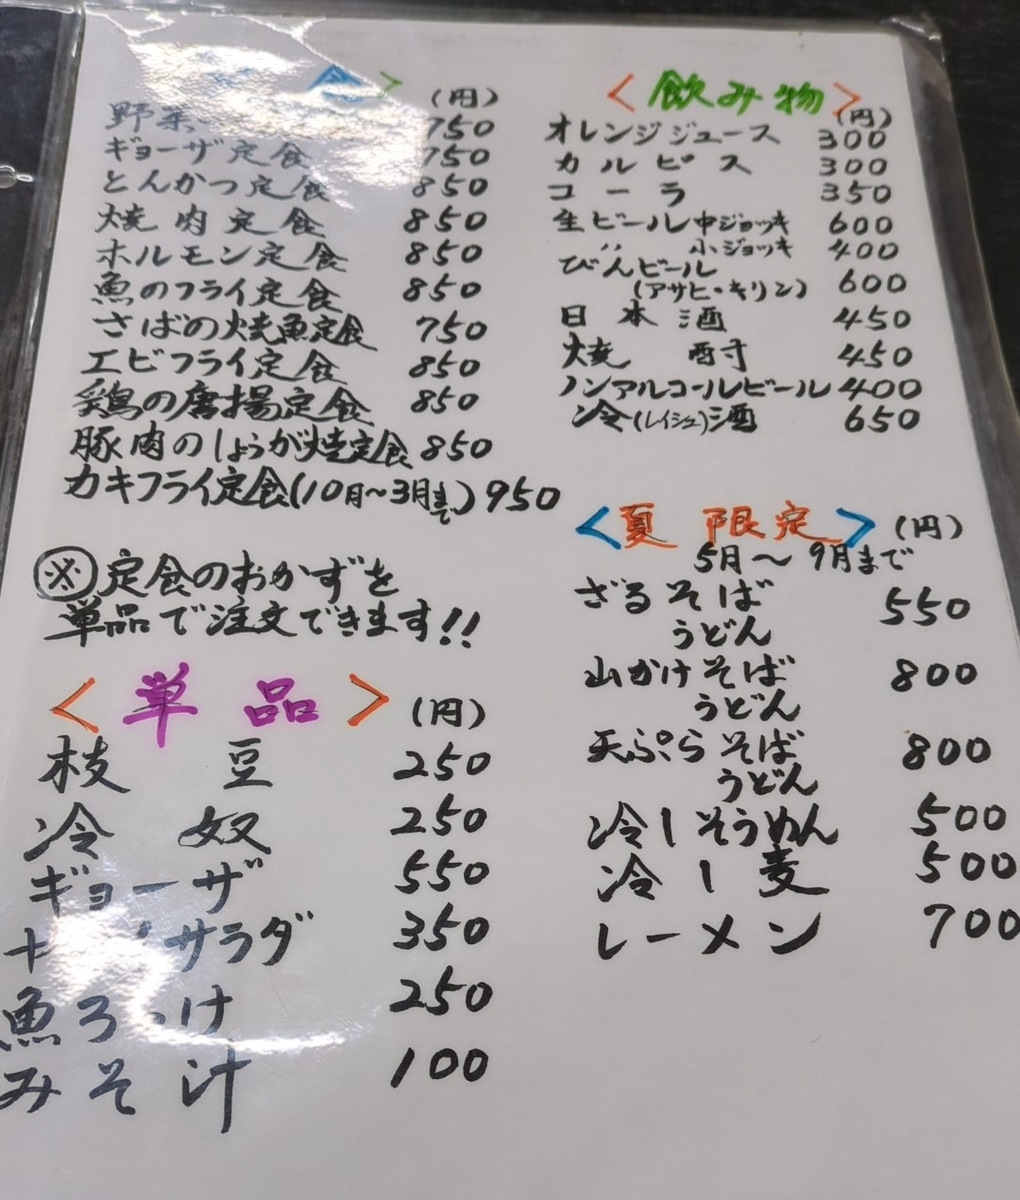 食>
(円)
野菜 750
ギョーザ定食 750
とんかつ定食 850
焼肉定食 850
ホルモン定食 850
魚のフライ定食 850
さばの焼魚定食 750
エビフライ定食 850
鶏の唐揚定食 850
豚肉のしょうが焼定食 850
カキフライ定食(10月〜3月まで) 950
※定食のおかずを
単品で注文できます!!
<単品>
(円)
枝豆 250
冷奴 250
ギョーザ 550
サラダ 350
魚 250
みそ汁 100
<飲み物>
(円)
オレンジジュース 300
カルピス 300
コーラ 350
生ビール中ジョッキ 600
〃 小ジョッキ 400
びんビール
(アサヒ・キリン) 600
日本酒 450
焼酎 450
ノンアルコールビール 400
冷(レイシュ)酒 650
<夏限定>(円)
5月〜9月まで
ざるそば 550
うどん
山かけそば 800
うどん
天ぷらそば 800
うどん
冷しそうめん 500
冷し麦 500
レーメン 700